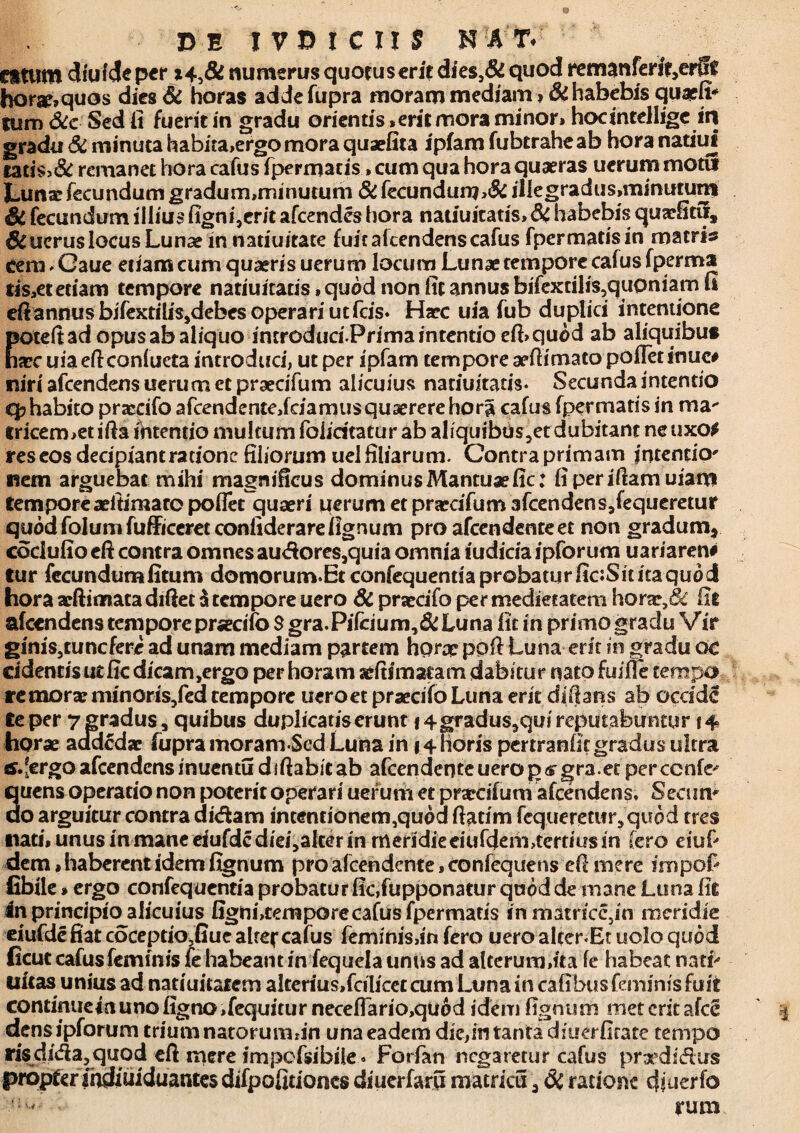 DE IVDICIIS NAT.
catum diuide per 24,& numerus quotus erit dies,& quod remanserit,erũt
horæ,quos dies & horas adde supra moram mediam, & habebis quæsi-
tum &c Sed si fuerit in gradu orientis, erit mora minor, hoc intellige in
gradu & minuta habita,ergo mora quæsita ipsam subtrahe ab hora natiui
tatis,& remanet hora casus spermatis, cum qua hora quæras uerum motũ
Lunæ secundum gradum,minutum & secundum,& ille gradus,minutum
& secundum illius signi,erit ascendẽs hora natiuitatis, & habebis quæsitũ,
& uerus locus Lunæ in natiuitate fuit ascendens casus spermatis in matris
cem. Caue etiam cum quæris uerum locum Lunæ tempore casus sperma
tis,et etiam tempore natiuitatis, quòd non sit annus bisextilis,quoniam si
est annus bisextilis,debes operari ut scis. Hæc uia sub duplici intentione
potest ad opus ab aliquo introduci.Prima intentio est,quòd ab aliquibus
hæc uia est consueta introduci, ut per ipsam tempore æstimato posset inue-
niri ascendens uerum et præcisum alicuius natiuitatis. Secunda intentio
ꝙ habito præciso ascendente,sciamus quærere horã casus spermatis in ma-
tricem,et ista intentio multum solicitatur ab aliquibus,et dubitant ne uxo-
res eos decipiant ratione filiorum uel filiarum. Contra primam intentio-
nem arguebat mihi magnificus dominus Mantuæ sic: si per istam uiam
tempore æstimato posset quæri uerum et præcisum ascendens,sequeretur
quòd solum sufficeret considerare signum pro ascendente et non gradum,
cõclusio est contra omnes auctores,quia omnia iudicia ipsorum uariaren-
tur secundum situm domorum.Et consequentia probatur sic:Sit ita quòd
hora æstimata distet à tempore uero & præciso per medietatem horæ,& sit
ascendens tempore præciso 8 gra.Piscium,& Luna sit in primo gradu Vir
ginis,tunc ferè ad unam mediam partem horæ post Luna erit in gradu oc
cidentis ut sic dicam,ergo per horam æstimatam dabitur nato fuisse tempo
re moræ minoris,sed tempore uero et præciso Luna erit distans ab occidẽ
te per 7 gradus, quibus duplicatis erunt 14 gradus,qui reputabuntur 14
horæ addẽdæ supra moram.Sed Luna in 14 horis pertransit gradus ultra
6. ergo ascendens inuentũ distabit ab ascendente uero p 6 gra.et per conse-
quens operatio non poterit operari uerum et præcisum ascendens. Secun-
do arguitur contra dictam intentionem,quòd statim sequeretur, quòd tres
nati, unus in mane eiusdẽ diei,alter in meridie eiusdem,tertius in sero eius-
dem, haberent idem signum pro ascendente, consequens est mere impos-
sibile, ergo consequentia probatur sic,supponatur quòd de mane Luna sit
in principio alicuius signi,tempore casus spermatis in matricẽ,in meridie
eiusdẽ fiat cõceptio,siue alter casus seminis,in sero uero alter.Et uolo quòd
sicut casus seminis se habeant in sequela unus ad alterum,ita se habeat nati-
uitas unius ad natiuitatem alterius,scilicet cum Luna in casibus seminis fuit
continue in uno signo,sequitur necessario,quòd idem signum met erit ascẽ
dens ipsorum trium natorum,in una eadem die,in tanta diuersitate tempo
ris dicta,quod est mere impossibile. Forsan negaretur casus prædictus
propter indiuiduantes dispositiones diuersarũ matricũ, & ratione diuerso
rum